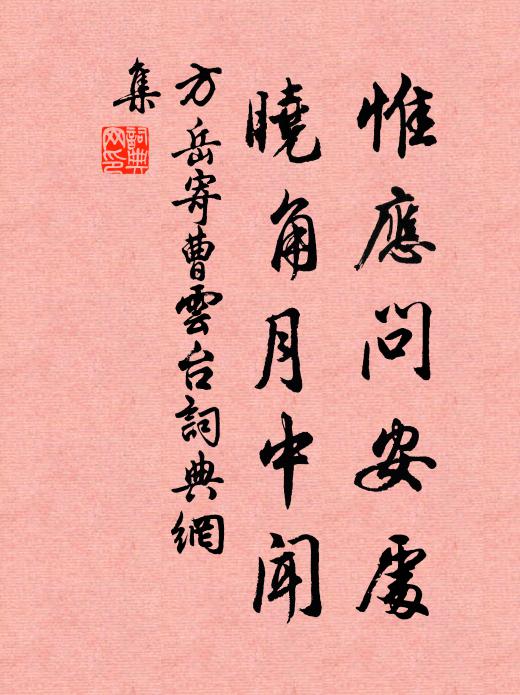 惟應問安處
曉角月中聞
方岳寄曹雲台詞典網
集
詞典
网印